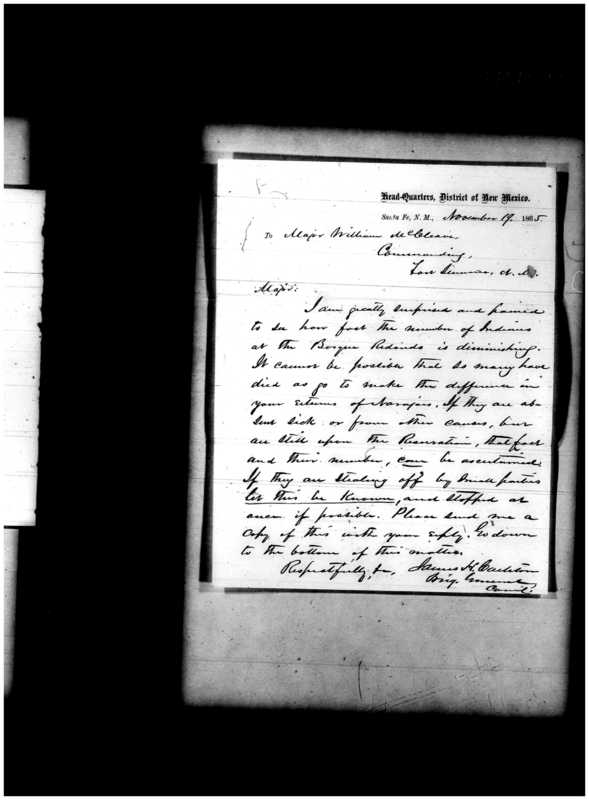 Head-Quarters, District of New Mexico.
Santa Fe, N. M., November 17, 1865.
To Major William McCleave,
Commanding,
Fort Sumner, N. M.
Major:
I am greatly surprised and pained
to see how fast the number of Indians
at the Bosque Redondo is diminishing.
It cannot be possible that so many have
died as go to make the difference in
your returns of Navajoes. If they are ab-
sent sick or from other causes, but
are still upon the Reservation, that fact
and their number, can be ascertained.
If they are stealing off by small parties
let this be known, and stopped at
once if possible. Please send me a
copy of this with your reply. Go down
to the bottom of this matter.
Respectfully, &c, James H. Carleton
Brig. General
Comd'g